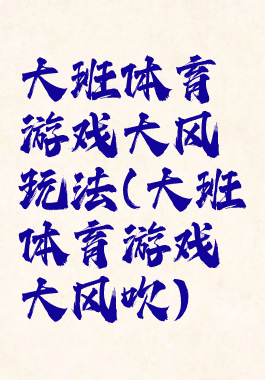 大班体育
游戏大风
玩法(大班
体育游戏
大风吹)